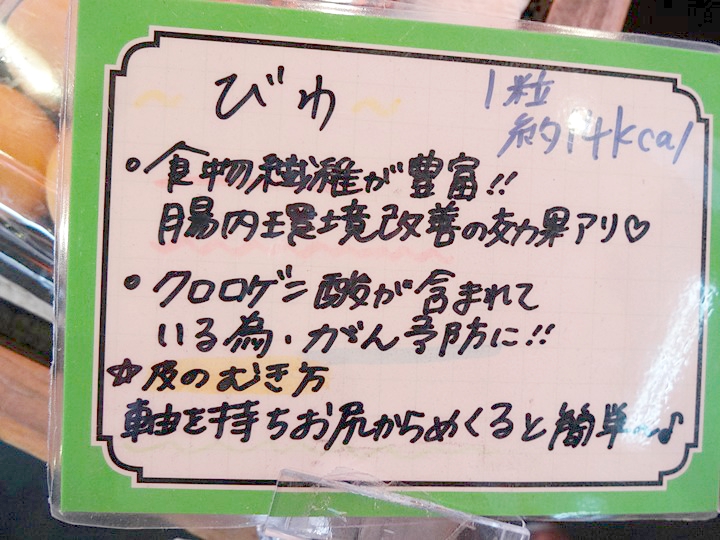 ~びわ~
1粒
約14kcal
•食物繊維が豊富!!
腸内環境改善の効果アリ♡
•クロロゲン酸が含まれて
いる為、がん予防に!!
☆皮のむき方
軸を持ちお尻からめくると簡単〜♪